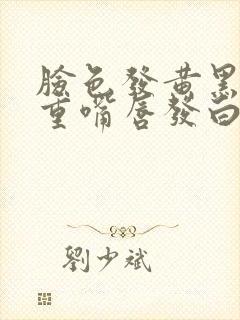 臉色發黃黑
重嘴唇發白
劉少斌